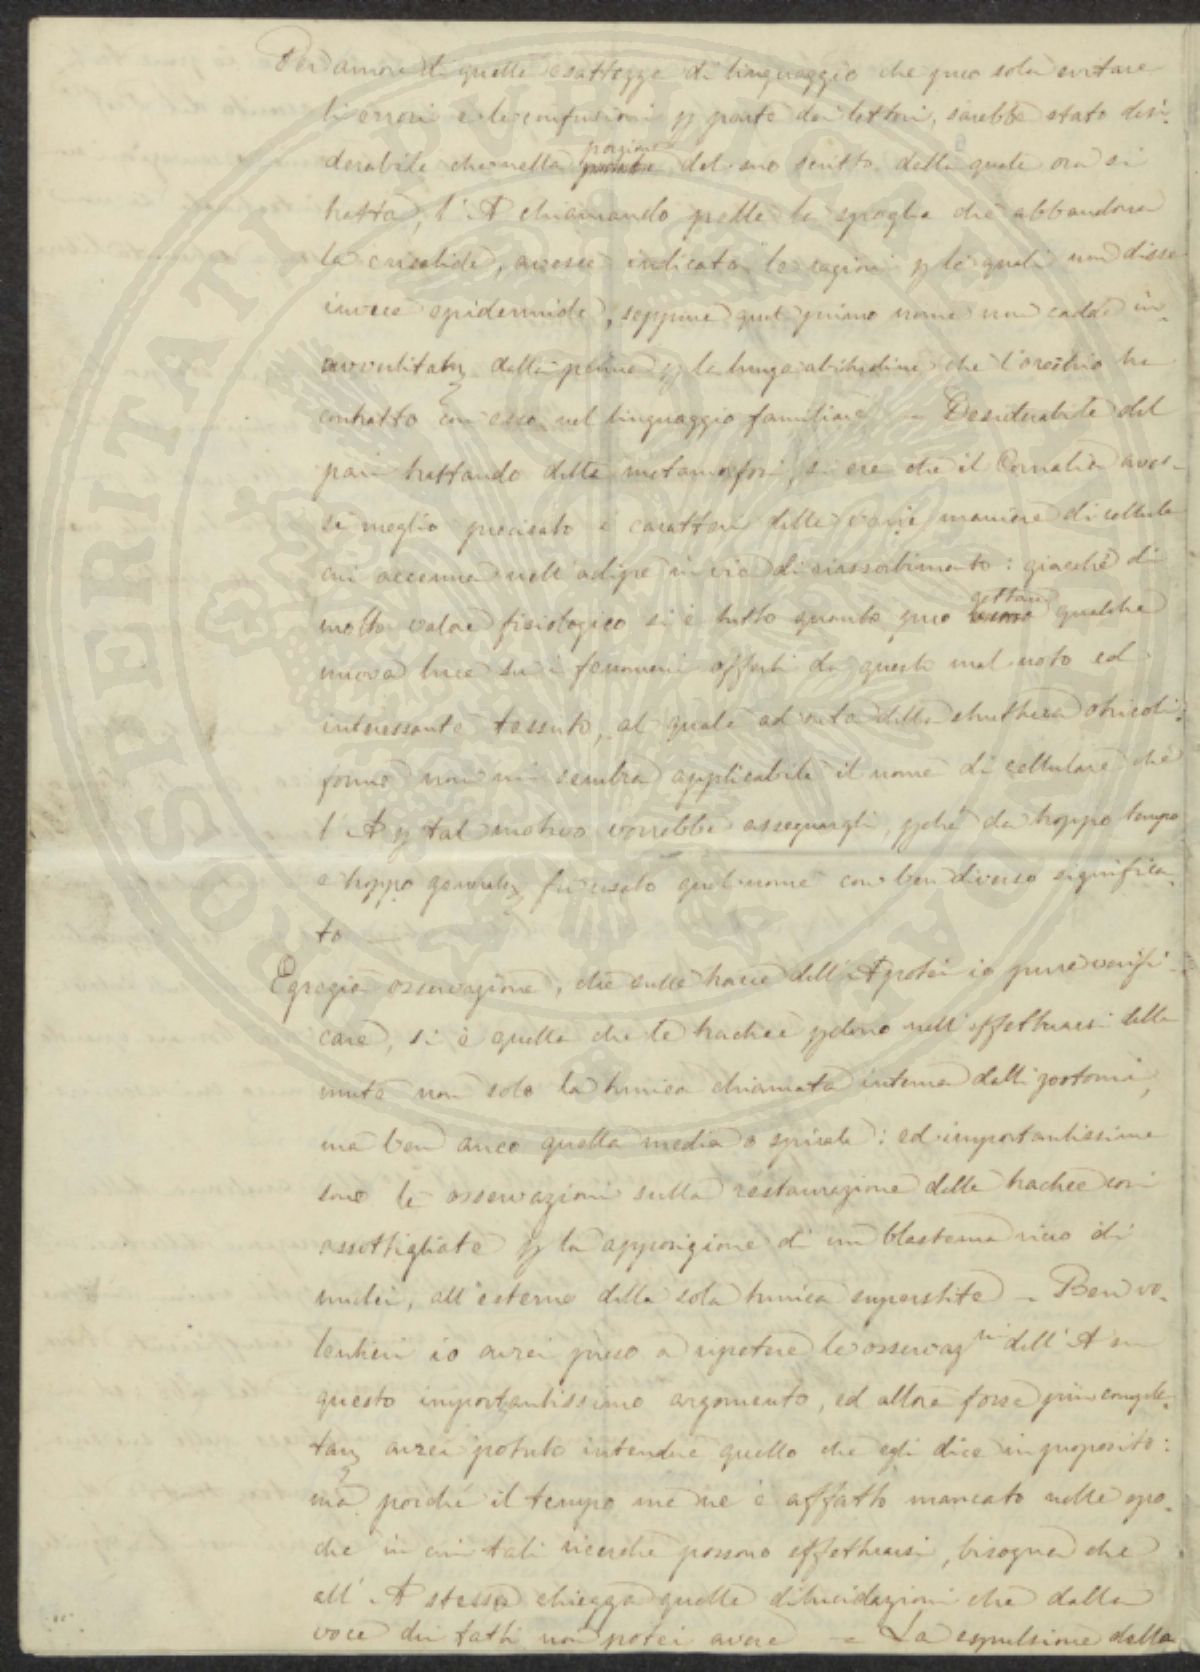 Per amore di quella esattezza di linguaggio che può sola evitare
li errori e le confusioni p parte dei lettori, sarebbe stato desi-
derabile che nella porzione del suo scritto della quale ora si
tratta, l'A chiamando pelle la spoglia che abbandona
la crisalide, avesse indicato le ragioni p le quali non disse
invece epidermide, seppure quel primo nome non cadde in-
avvertitam dalla penna p la lunga abitudine che l'orecchio ha
contratto con esso nel linguaggio familiare – Desiderabile del
pari trattando della metamorfosi, si era che il Cornalia aves-
se meglio precisato i caratteri delle varie maniere di cellule
cui accenna nell'adipe in via di riassorbimento: giacchè di
molto valore fisiologico si è tutto quanto può gettare qualche
nuova luce su i fenomeni offerti da questo mal noto ed
interessante tessuto, al quale ad onta della struttura otricoli-
forme non mi sembra applicabile il nome di cellulare che
l'A p tal motivo vorrebbe assegnargli, pchè da troppo tempo
e troppo generalm fu usato quel nome con ben diverso significa-
to —
Egregia osservazione, che sulle tracce dell'A potei io pure verifi-
care, si è quella che le trachee pdono nell'effettuarsi della
muta non solo la tunica chiamata interna dalli zootomi,
ma ben anco quella media o spirale: ed importantissime
sono le osservazioni sulla restaurazione delle trachee così
assottigliate p la apposizione di un blastema ricco di
nuclei, all'esterno della sola tunica superstite – Ben vo-
lentieri io avrei preso a ripetere le osservaz.ni dell'A su
questo importantissimo argomento, ed allora forse più comple-
tam avrei potuto intendere quello che egli dice in proposito:
ma poichè il tempo me ne è affatto mancato nelle epo-
che in cui tali ricerche possono effettuarsi, bisogna che
all'A stesso chiegga quelle dilucidazioni che dalla
voce dei fatti non potei avere – La espulsione della
PROSPERITATI PUBLICAE